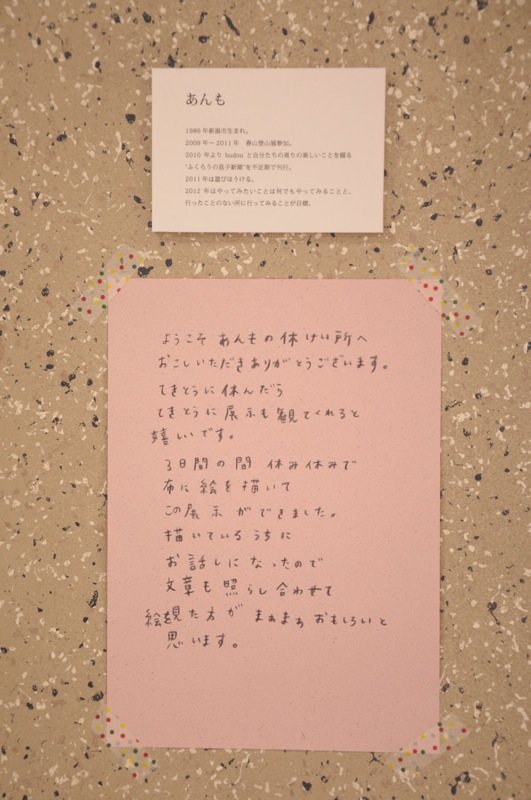 あんも
1986年新潟市生まれ。
2009年～2011年　春山登山展参加。
2010年より budou と自分たちの周りの楽しいことを綴る
"ふくろうの息子新聞"を不定期で刊行。
2011年は遊びほうける。
2012年はやってみたいことは何でもやってみることと、
行ったことのない所に行ってみることが目標。
ようこそ あんもの休けい所へ
おこしいただきありがとうございます。
てきとうに休んだら
てきとうに展示も観てくれると
嬉しいです。
3日間の間 休み休みで
布に絵を描いて
この展示ができました。
描いているうちに
お話しになったので
文章も照らし合わせて
絵を見た方が まあまあ おもしろいと
思います。